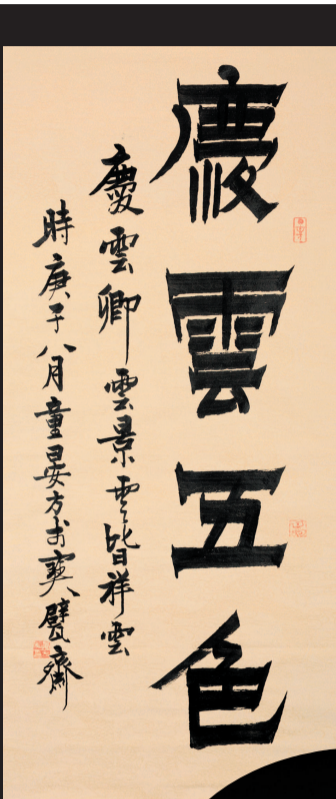 慶雲五色
慶雲卿雲景雲皆祥雲
時庚子八月童晏方於寶甓齋